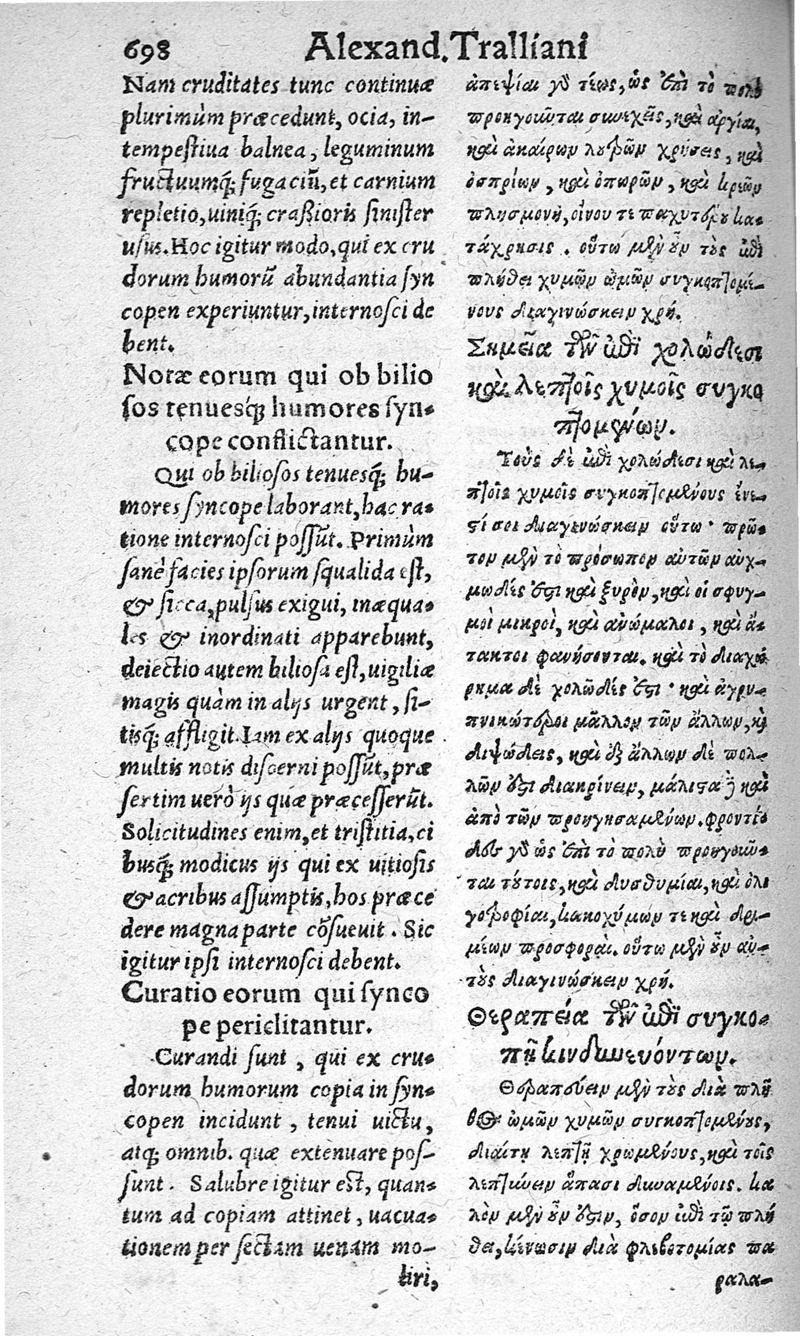 698 Alexand. Tralliani
Nam cruditates tunc continuæ
plurimùm præcedunt, ocia, in-
tempestiua balnea, leguminum
fructuumq́; fugaciũ, et carnium
repletio, uiniq́; craßioris sinister
usus. Hoc igitur modo, qui ex cru
dorum humorũ abundantia syn
copen experiuntur, internosci de
bent.
Notæ eorum qui ob bilio
sos tenuesq́; humores syn-
cope conflictantur.
Qui ob biliosos tenuesq́; hu-
mores syncope laborant, hac ra-
tione internosci possũt. Primùm
sanè facies ipsorum squalida est,
& sicca, pulsus exigui, inæqua-
les & inordinati apparebunt,
deiectio autem biliosa est, uigiliæ
magis quàm in alijs urgent, si-
tisq́; affligit. Iam ex alijs quoque
multis notis discerni possũt, præ
sertim uerò ijs quæ præcesserũt.
Solicitudines enim, et tristitia, ci
busq́; modicus ijs qui ex uitiosis
& acribus assumptis, hos præce
dere magna parte cõsueuit. Sic
igitur ipsi internosci debent.
Curatio eorum qui synco
pe periclitantur.
Curandi sunt, qui ex cru-
dorum humorum copia in syn-
copen incidunt, tenui uictu,
atq́; omnib. quæ extenuare pos-
sunt. Salubre igitur est, quan-
tum ad copiam attinet, uacua-
tionem per sectam uenam mo-
liri,
ἀπεψίαι γὸ τέως, ὡς ἐπὶ τὸ πολὺ
προηγοῦνται συνεχεῖς, καὶ ἀργίαι,
καὶ ἀκαίρων λουτρῶν χρήσεις, καὶ
ὀσπρίων, καὶ ὀπωρῶν, καὶ κρεῶν
πλησμονὴ, οἴνου τε παχυτέρου κα-
τάχρησις. οὕτω μὲν οὖν τοὺς ἐπὶ
πλήθει χυμῶν ὠμῶν συγκοπτομέ-
νους διαγινώσκειν χρή.
Σημεῖα τῶν ἐπὶ χολώδεσι
καὶ λεπτοῖς χυμοῖς συγκο
πτομένων.
Τοὺς δὲ ἐπὶ χολώδεσι καὶ λε-
πτοῖς χυμοῖς συγκοπτομένους ἔνε-
στί σοι διαγινώσκειν οὕτω· πρῶ-
τον μὲν τὸ πρόσωπον αὐτῶν αὐχ-
μῶδές ἐστι καὶ ξηρὸν, καὶ οἱ σφυγ-
μοὶ μικροὶ, καὶ ἀνώμαλοι, καὶ ἄ-
τακτοι φανήσονται. καὶ τὸ διαχώ
ρημα δὲ χολῶδές ἐστι· καὶ ἀγρυ-
πνικώτεροι μᾶλλον τῶν ἄλλων, καὶ
διψώδεις, καὶ ἐξ ἄλλων δὲ πολ-
λῶν ἐστι διακρίνειν, μάλιστα δὲ καὶ
ἀπὸ τῶν προηγησαμένων. φροντί-
δες γὸ ὡς ἐπὶ τὸ πολὺ προηγοῦν-
ται τούτοις, καὶ δυσθυμίαι, καὶ ὀλι
γοτροφίαι, κακοχύμων τε καὶ δρι-
μέων προσφοραί. οὕτω μὲν οὖν αὐ-
τοὺς διαγινώσκειν χρή.
Θεραπεία τῶν ἐπὶ συγκο-
πῇ κινδυνευόντων.
Θεραπεύειν μὲν τοὺς διὰ πλῆ
θος ὠμῶν χυμῶν συγκοπτομένους,
διαίτῃ λεπτῇ χρωμένους, καὶ τοῖς
λεπτύνειν ἅπασι δυναμένοις. κα
λὸν μὲν οὖν ἐστιν, ὅσον ἐπὶ τῷ πλή
θει, κένωσιν διὰ φλεβοτομίας πα
ραλα-